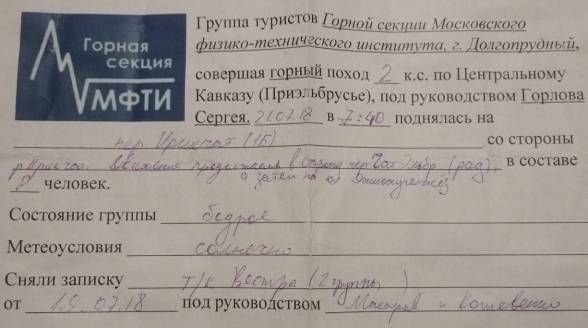 Горная
секция
МФТИ
Группа туристов Горной секции Московского
физико-технического института, г. Долгопрудный,
совершая горный поход 2 к.с. по Центральному
Кавказу (Приэльбрусье), под руководством Горлова
Сергея. 21.07.18 в 7:40 поднялась на
пер Ирикчат (1Б) со стороны
р Ирикчат. Движение продолжаем в сторону пер Чат Эльбр (рад), в составе
а затем на
8 человек.
Состояние группы бодрое
Метеоусловия солнечно
Сняли записку т/к Вестра (2 группы)
от 19.07.18 под руководством Макаров и